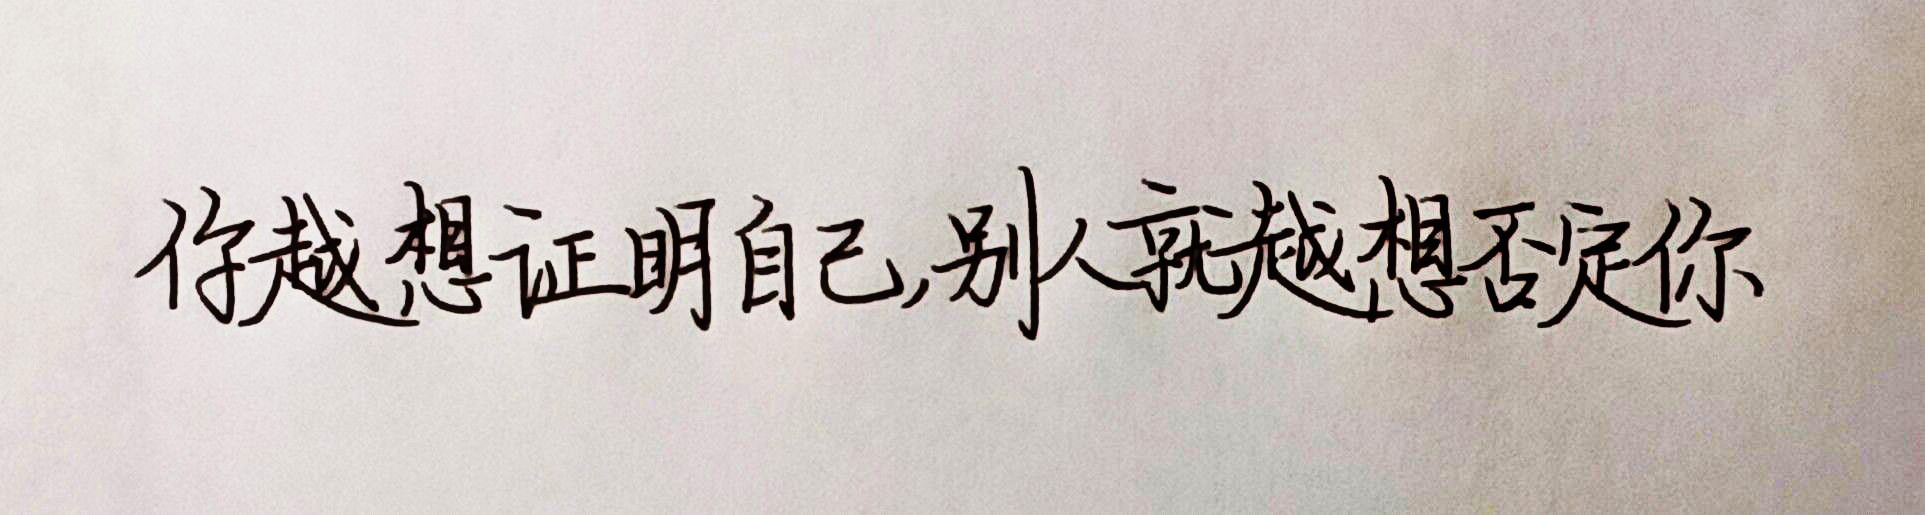 你越想证明自己,别人就越想否定你